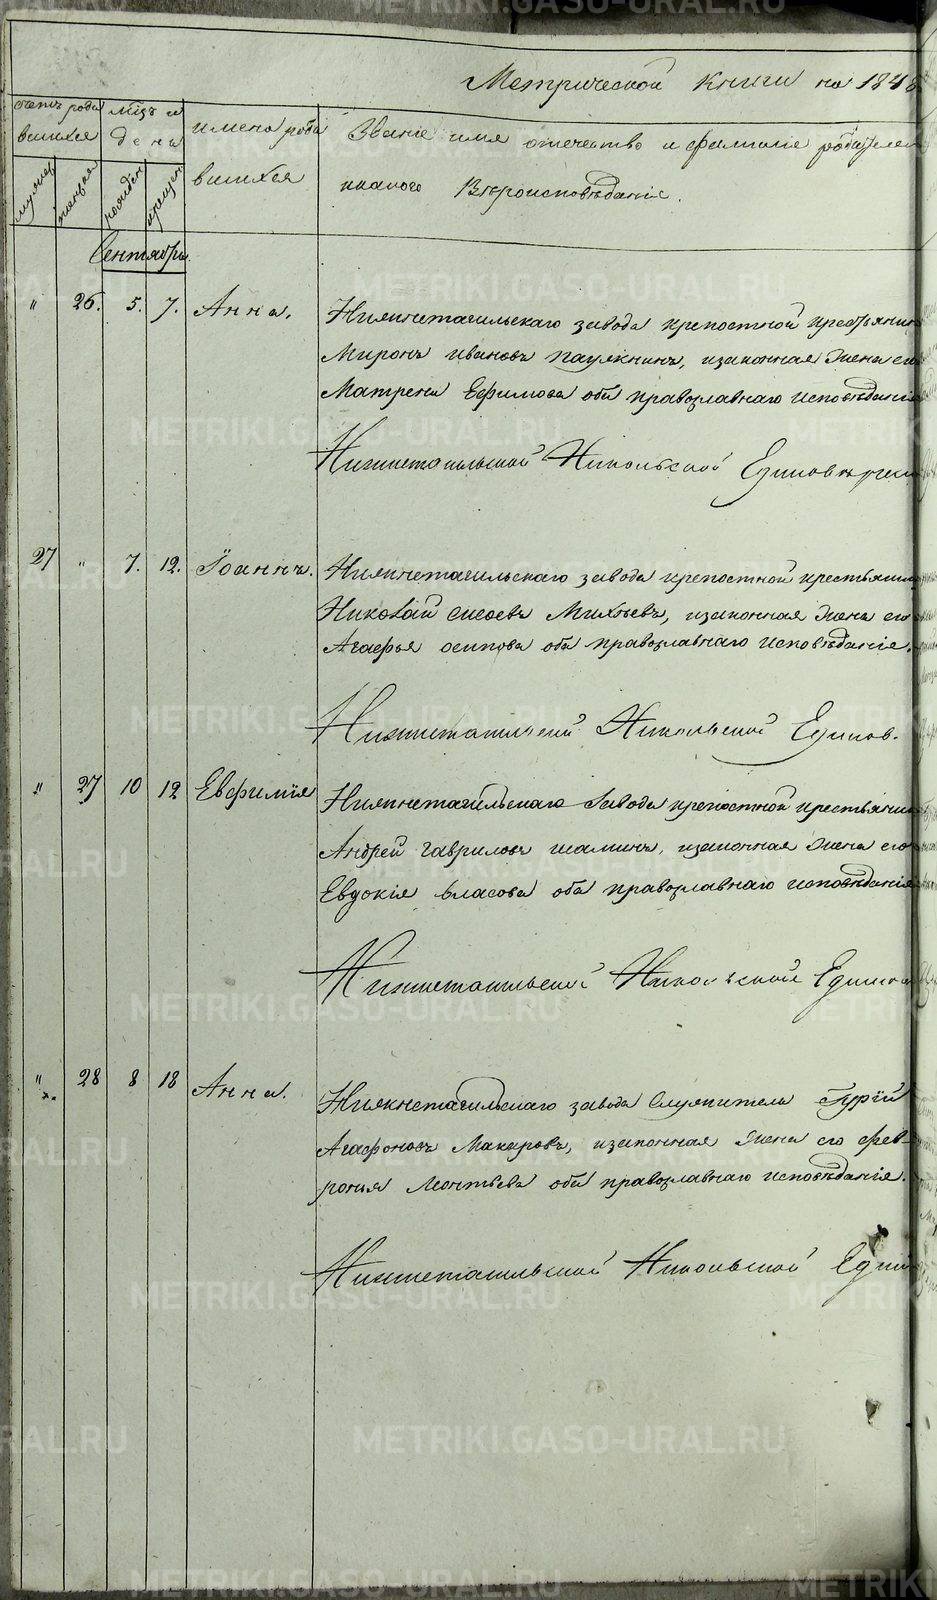 METRIKI.GASO-URAL.RU
Метрической книги на 1848
счетъ роди
вшихся
мѣцъ и
день
имена роди
вшихся
Званіе имя отечество и фамиліе родителей
и какого Вѣроисповѣданіе.
мужеск
женска
рожден
крещен
Сентябрь
" 26. 5. 7. Анна.
Нижнетагильскаго завода крепостной крестьянин
Миронъ Ивановъ , изаконная жена его
Матрена Ефимова оба православнаго исповѣданія
Нижнетагильской Никольской Единоверчес
27 " 7. 12. Іоаннъ.
Нижнетагильскаго завода крепостной крестьянин
Николай Михѣевъ, изаконная жена его
Агафья осипова оба православнаго исповѣданіе.
Нижнетагильской Никольской Единов.
" 27 10 12 Евфимія
Нижнетагильскаго Завода крепостной крестьянин
Андрей Гавриловъ шаминъ, изаконная жена его
Евдокія власова оба православнаго исповѣданія
Нижнетагильской Никольской Единов
" 28 8 18 Анна.
х.
Нижнетагильскаго завода Служитель Гурій
Агафоновъ Макаровъ, изаконная жена его фев-
ронія Леонтьева оба православнаго исповѣданія.
Нижнетагильской Никольской Един